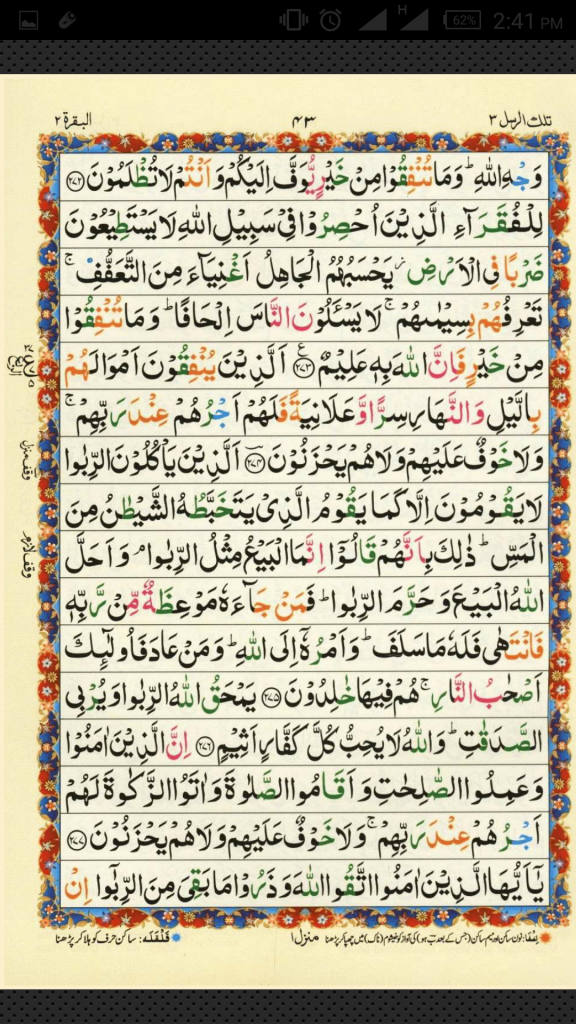 H 62% 2:41 PM
تلك الرسل ٣ ٤٣ البقرة ٢
وَجْهِ اللّٰهِ ؕ وَمَا تُنْفِقُوْا مِنْ خَيْرٍ يُّوَفَّ اِلَيْكُمْ وَاَنْتُمْ لَا تُظْلَمُوْنَ ﴿۲۷۲﴾
لِلْفُقَرَآءِ الَّذِيْنَ اُحْصِرُوْا فِيْ سَبِيْلِ اللّٰهِ لَا يَسْتَطِيْعُوْنَ
ضَرْبًا فِى الْاَرْضِ ؗ يَحْسَبُهُمُ الْجَاهِلُ اَغْنِيَآءَ مِنَ التَّعَفُّفِ ۚ
تَعْرِفُهُمْ بِسِيْمٰىهُمْ ۚ لَا يَسْـَٔلُوْنَ النَّاسَ اِلْحَافًا ؕ وَمَا تُنْفِقُوْا
مِنْ خَيْرٍ فَاِنَّ اللّٰهَ بِهٖ عَلِيْمٌ ﴿۲۷۳﴾ اَلَّذِيْنَ يُنْفِقُوْنَ اَمْوَالَهُمْ
بِالَّيْلِ وَالنَّهَارِ سِرًّا وَّعَلَانِيَةً فَلَهُمْ اَجْرُهُمْ عِنْدَ رَبِّهِمْ ۚ
وَلَا خَوْفٌ عَلَيْهِمْ وَلَا هُمْ يَحْزَنُوْنَ ﴿۲۷۴﴾ اَلَّذِيْنَ يَاْكُلُوْنَ الرِّبٰوا
وقف منزل
لَا يَقُوْمُوْنَ اِلَّا كَمَا يَقُوْمُ الَّذِيْ يَتَخَبَّطُهُ الشَّيْطٰنُ مِنَ
الْمَسِّ ؕ ذٰلِكَ بِاَنَّهُمْ قَالُوْٓا اِنَّمَا الْبَيْعُ مِثْلُ الرِّبٰوا ۘ وَاَحَلَّ
وقف لازم
اللّٰهُ الْبَيْعَ وَحَرَّمَ الرِّبٰوا ؕ فَمَنْ جَآءَهٗ مَوْعِظَةٌ مِّنْ رَّبِّهٖ
فَانْتَهٰى فَلَهٗ مَا سَلَفَ ؕ وَاَمْرُهٗٓ اِلَى اللّٰهِ ؕ وَمَنْ عَادَ فَاُولٰٓئِكَ
اَصْحٰبُ النَّارِ ۚ هُمْ فِيْهَا خٰلِدُوْنَ ﴿۲۷۵﴾ يَمْحَقُ اللّٰهُ الرِّبٰوا وَيُرْبِى
الصَّدَقٰتِ ؕ وَاللّٰهُ لَا يُحِبُّ كُلَّ كَفَّارٍ اَثِيْمٍ ﴿۲۷۶﴾ اِنَّ الَّذِيْنَ اٰمَنُوْا
وَعَمِلُوا الصّٰلِحٰتِ وَاَقَامُوا الصَّلٰوةَ وَاٰتَوُا الزَّكٰوةَ لَهُمْ
اَجْرُهُمْ عِنْدَ رَبِّهِمْ ۚ وَلَا خَوْفٌ عَلَيْهِمْ وَلَا هُمْ يَحْزَنُوْنَ ﴿۲۷۷﴾
يٰٓاَيُّهَا الَّذِيْنَ اٰمَنُوا اتَّقُوا اللّٰهَ وَذَرُوْا مَا بَقِيَ مِنَ الرِّبٰٓوا اِنْ
اِخفا: نون ساکن اور میم ساکن (جس کے بعد ب ہو) کی آواز کو خیشوم (ناک) میں چھپا کر پڑھنا منزل ۱ قلقلہ: ساکن حرف کو ہلا کر پڑھنا